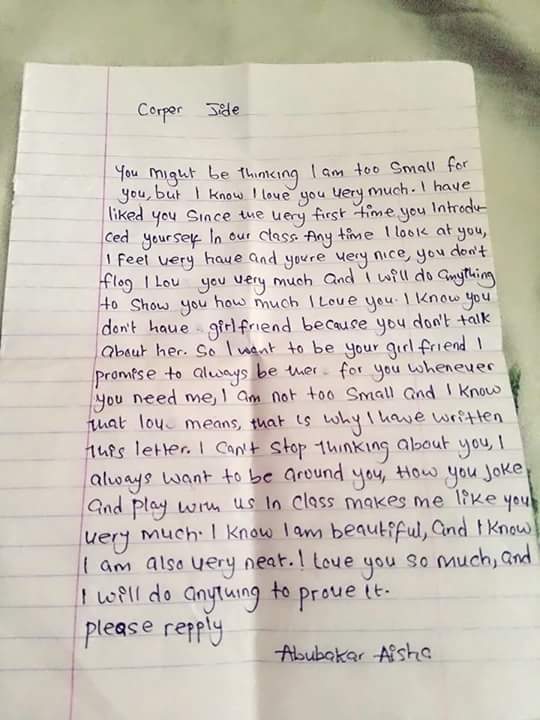 Corper Jide
You might be thinking I am too small for
you, but I know I love you very much. I have
liked you since the very first time you introdu-
ced yourself in our class. Any time I look at you,
I feel very have and you're very nice, you don't
flog I Lov you very much and I will do anything
to show you how much I Love you. I know you
don't have girlfriend because you don't talk
about her. So I want to be your girl friend I
promise to always be ther for you whenever
you need me, I am not too small and I know
that lov means, that is why I have written
this letter. I can't stop thinking about you, I
always want to be around you, How you joke
and play with us in class makes me like you
very much. I know I am beautiful, and I know
I am also very neat. I love you so much, and
I will do anything to prove it.
please repply
Abubakar Aisha